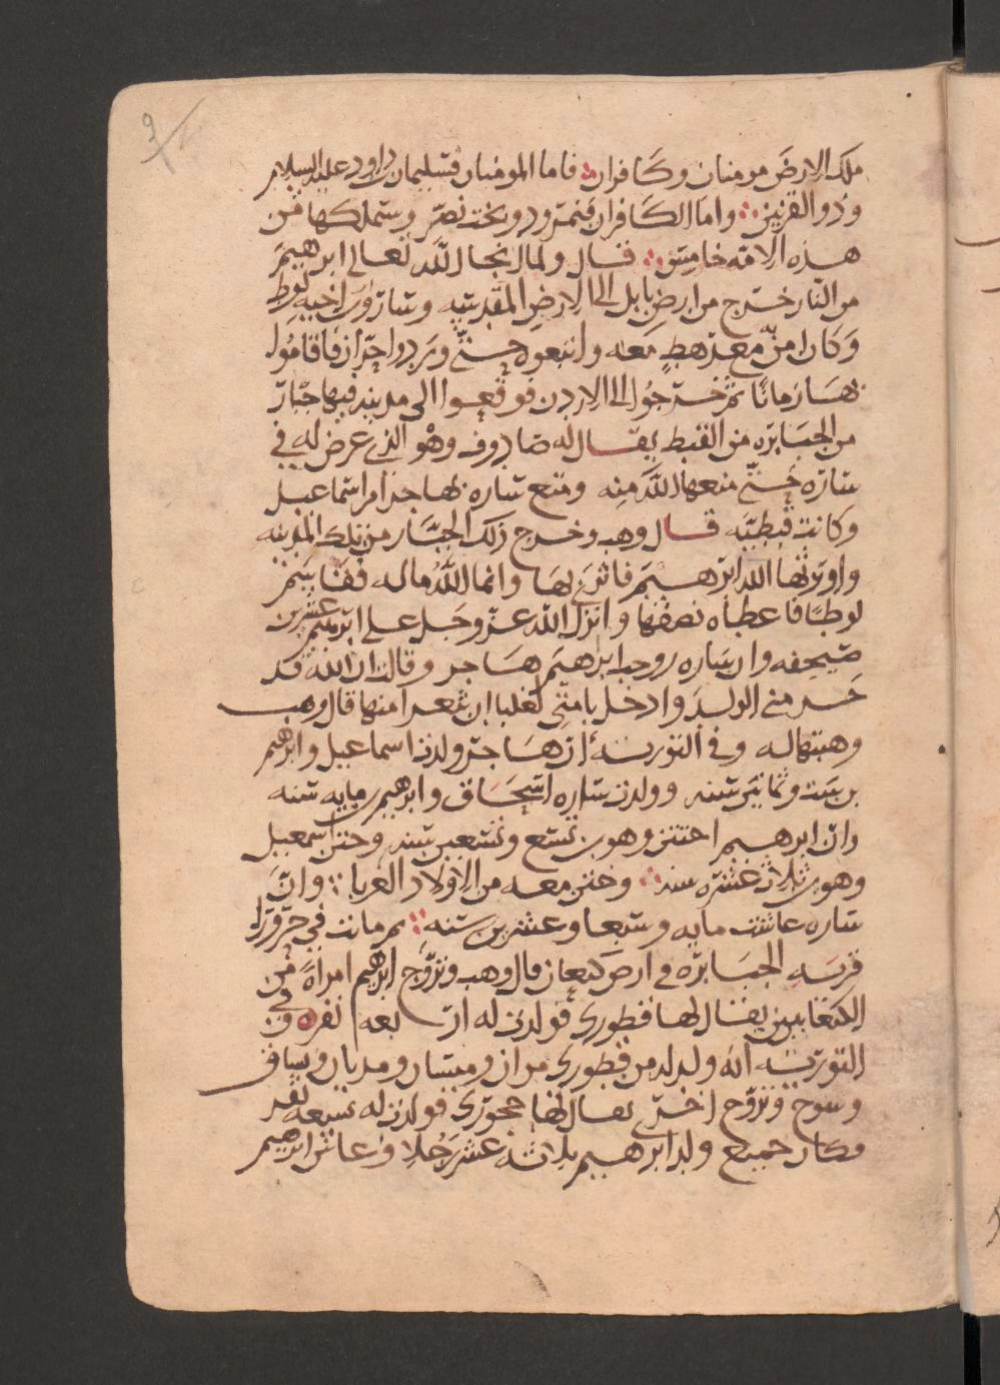 9
ملك الارض مومنان وكافران فاما المومنان فسليمان بن داود عليه السلام
وذو القرنين واما الكافران فنمرود وبخت نصر وستملكها من
هذه الامة خامس قال ولما انجا الله تعالى ابرهيم
من النار خرج من ارض بابل الى الارض المقدسه وساره وابن اخيه لوط
وكان امن معه رهط معه واتبعوه حتى وردوا حران فاقاموا
بها زمانا ثم خرجوا الى الاردن فوقعوا الى مدينه فيها جبار
من الجبابره من القبط يقال له صادوف وهو الذي عرض له في
ساره حتى منعها الله منه ومتع ساره بهاجر ام اسماعيل
وكانت قبطيه قال وهب وخرج ذلك الجبار من تلك المدينه
واورثها الله ابرهيم فاثرى بها وانما الله ماله فقاسم
لوطا فاعطاه نصفها وانزل الله عز وجل على ابرهيم عشرين
صحيفه وان ساره زوجت ابرهيم هاجر وقالت ان الله قد
حرمني الولد وادخل بامتي لعلنا ان نعرا منها قال وهب
وهبتها له وفي التوريه ان هاجر ولدت اسماعيل وابرهيم
بن ست وثمانين سنه وولدت ساره اسحاق وابرهيم بن مايه سنه
وان ابرهيم اختتن وهو بن تسع وتسعين سنه وختن اسمعيل
وهو بن ثلاث عشره سنه وختن معه من الاولاد الغربا وان
ساره عاشت مايه وسبعا وعشرين سنه ثم ماتت في
قريه الجبابره في ارض كنعان قال وهب وتزوج ابرهيم امراة من
الكنعانيين يقال لها قطورى فولدت له اربعه نفر وفي
التوريه انه ولد له من قطورى مران ومتسان ومديان وساق
وسوح وتزوج اخرى يقال لها حجورى فولدت له سبعه نفر
فكان جميع ولد ابرهيم ثلاثه عشر رجلا وعاش ابرهيم